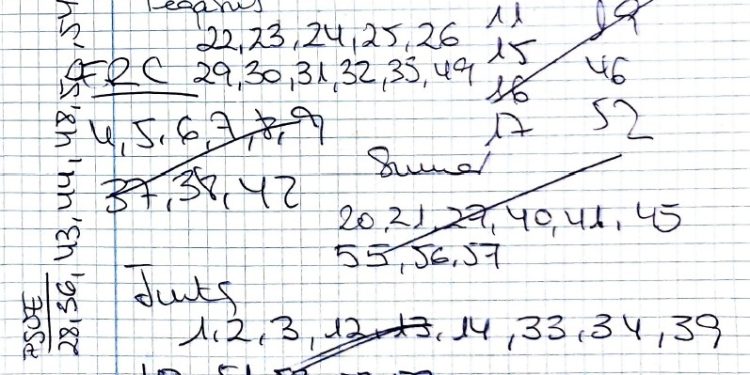 22, 23, 24, 25, 26
29, 30, 31, 32, 35, 49
11
15
16
17
19
46
52
ERC
4, 5, 6, 7, 8, 9
37, 38, 42
Sumar
20, 21, 27, 40, 41, 45
55, 56, 57
Junts
1, 2, 3, 12, 13, 14, 33, 34, 39
PSOE
28, 36, 43, 44, 48, 50, 54